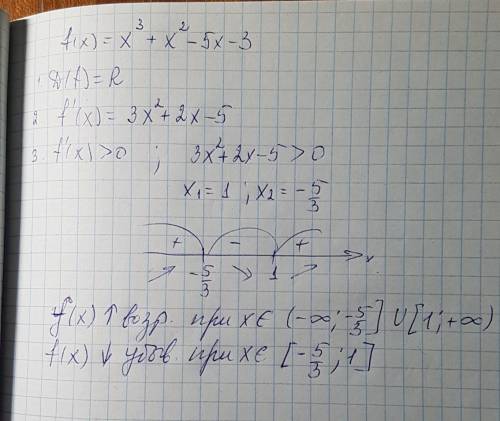 f(x) = x³ + x² - 5x - 3
1. D(f) = R
2. f'(x) = 3x² + 2x - 5
3. f'(x) > 0 ; 3x² + 2x - 5 > 0
x₁ = 1 ; x₂ = -5/3
+ - + x
-5/3 1
f(x) ↑ возр. при x ∈ (-∞; -5/3] ∪ [1; +∞)
f(x) ↓ убыв. при x ∈ [-5/3; 1]